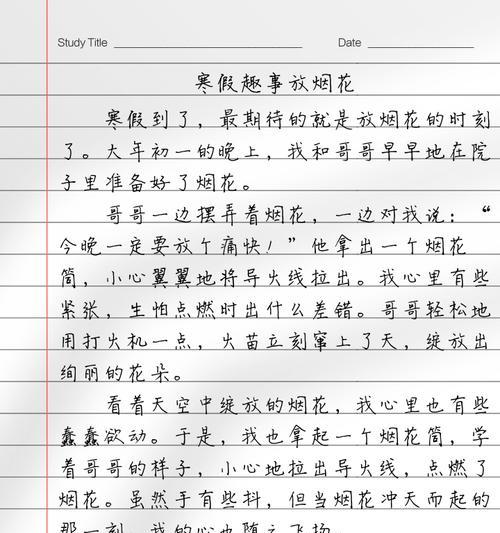 Study Title
Date
寒假趣事放烟花
寒假到了，最期待的就是放烟花的时刻
了。大年初一的晚上，我和哥哥早早地在院
子里准备好了烟花。
哥哥一边摆弄着烟花，一边对我说：“
今晚一定要放个痛快！”他拿出一个烟花
筒，小心翼翼地将导火线拉出。我心里有些
紧张，生怕点燃时出什么差错。哥哥轻松地
用打火机一点，火苗立刻窜上了天，绽放出
绚丽的花朵。
看着天空中绽放的烟花，我心里也有些
蠢蠢欲动。于是，我也拿起一个烟花筒，学
着哥哥的样子，小心地拉出导火线，点燃了
烟花。虽然手有些抖，但当烟花冲天而起的
那一刻，我的心也随之飞扬。